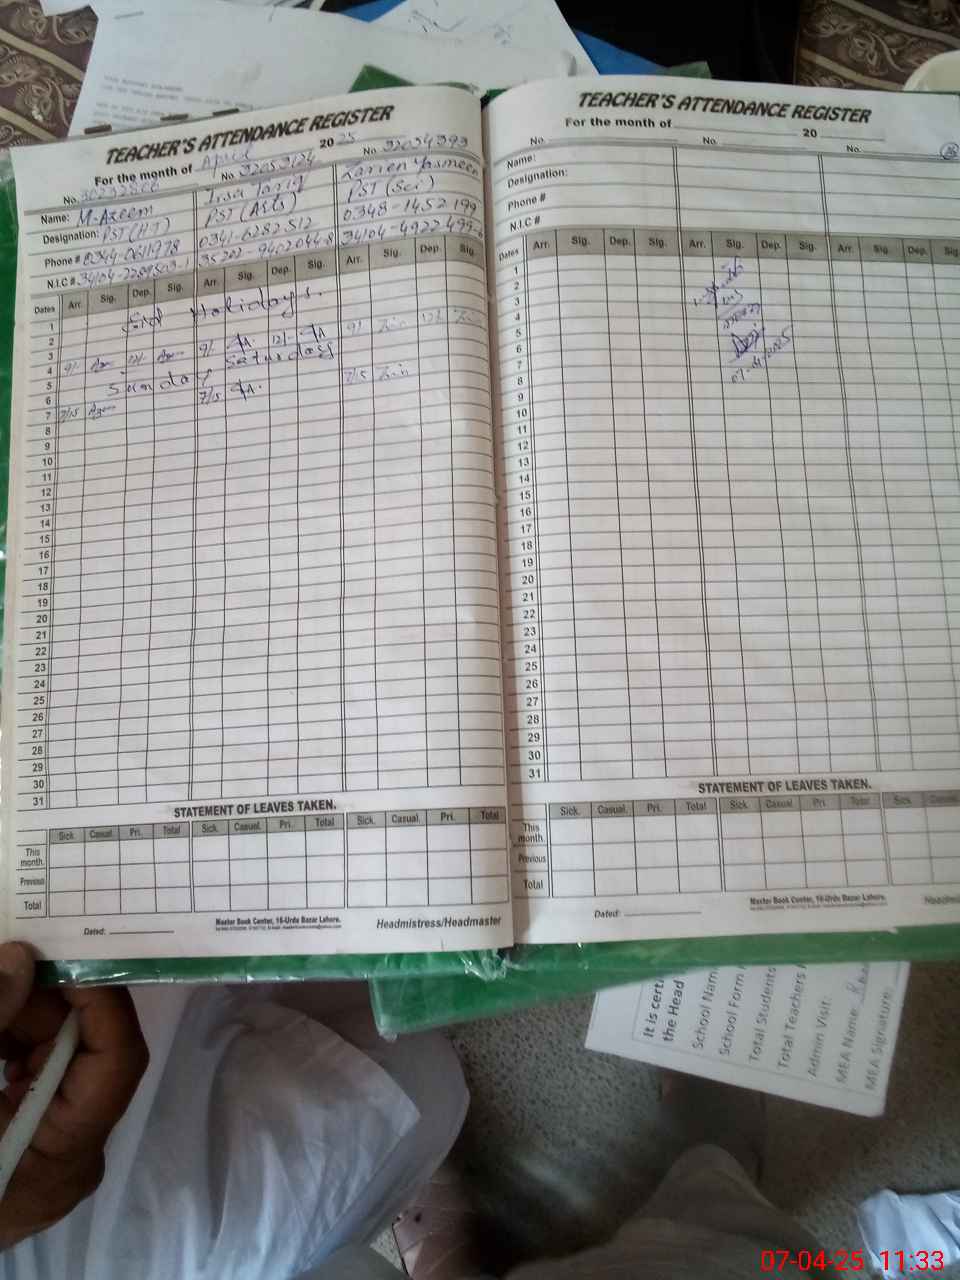 TEACHER'S ATTENDANCE REGISTER
For the month of April 2025
No. 30232806 No 32053124 No 32054393
Name: M-Azeem Irsa Tariq Zarien Yasmeen
Designation: PST (HT) PST (Arts) PST (Sci)
Phone # 0344-0611978 0341-6282512 0348-1452199
N.I.C #
Dates Arr. Sig. Dep. Sig. Arr. Sig. Dep. Sig. Arr. Sig. Dep. Sig.
1
2 Eid Holidays.
3
4 9/- 12/- 9/- 12/- 9/- 12/-
5 Saturday
6 Sunday
7 7/15 7/15 7/15
8
9
10
11
12
13
14
15
16
17
18
19
20
21
22
23
24
25
26
27
28
29
30
31
STATEMENT OF LEAVES TAKEN.
Sick. Casual. Pri. Total Sick. Casual. Pri. Total Sick. Casual. Pri. Total
This month.
Previous
Total
Dated:
Master Book Center, 16-Urdu Bazar Lahore.
Headmistress/Headmaster
TEACHER'S ATTENDANCE REGISTER
For the month of 20
No. No. No.
Name:
Designation:
Phone #
N.I.C #
Dates Arr. Sig. Dep. Sig. Arr. Sig. Dep. Sig. Arr. Sig. Dep. Sig
1
2
3
4
5
6
7
07-04-2025
8
9
10
11
12
13
14
15
16
17
18
19
20
21
22
23
24
25
26
27
28
29
30
31
STATEMENT OF LEAVES TAKEN.
Sick. Casual. Pri. Total Sick. Casual Pri. Total Sick.
This month.
Previous
Total
Dated:
Master Book Center, 16-Urdu Bazar Lahore.
It is certi
the Head
School Nam
School Form
Total Students
Total Teachers
Admin Visit:
MEA Name:
MEA Signature:
07-04-25 11:33